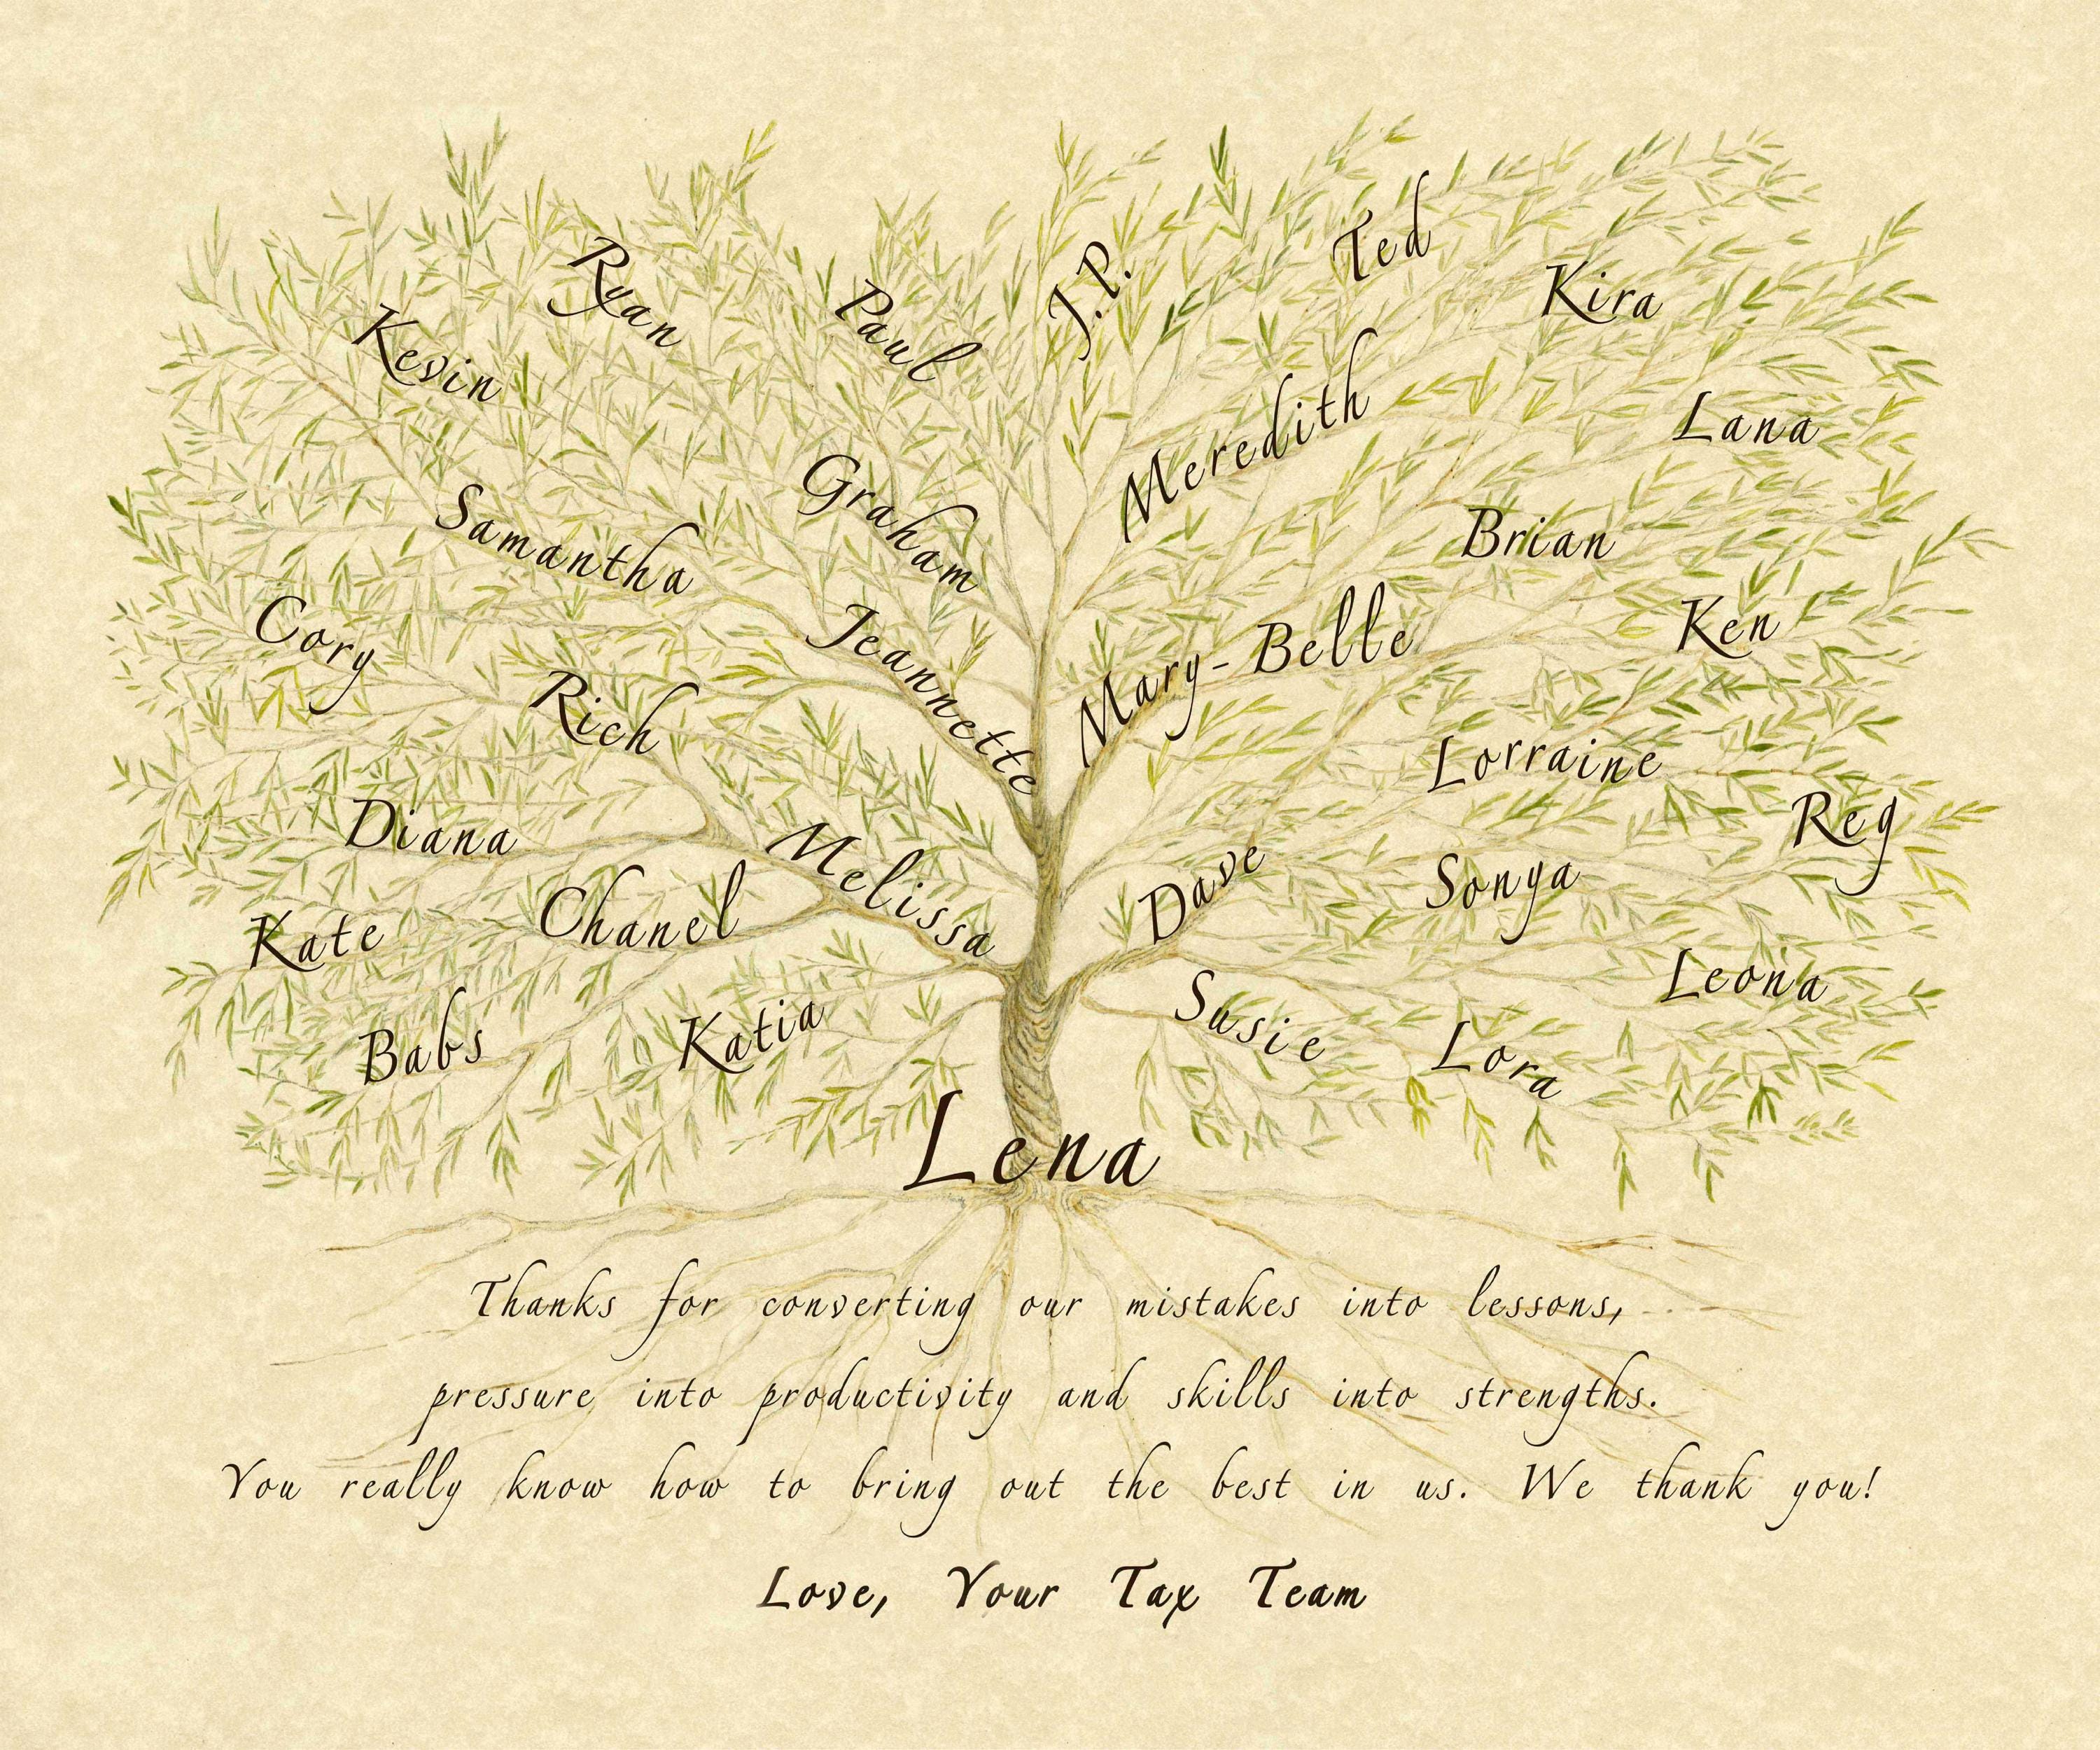 Ryan
Paul
J.P.
Ted
Kira
Kevin
Meredith
Lana
Graham
Samantha
Brian
Cory
Jeannette
Mary-Belle
Ken
Rich
Lorraine
Diana
Melissa
Dave
Reg
Kate
Chanel
Sonya
Babs
Katia
Susie
Leona
Lora
Lena
Thanks for converting our mistakes into lessons,
pressure into productivity and skills into strengths.
You really know how to bring out the best in us. We thank you!
Love, Your Tax Team